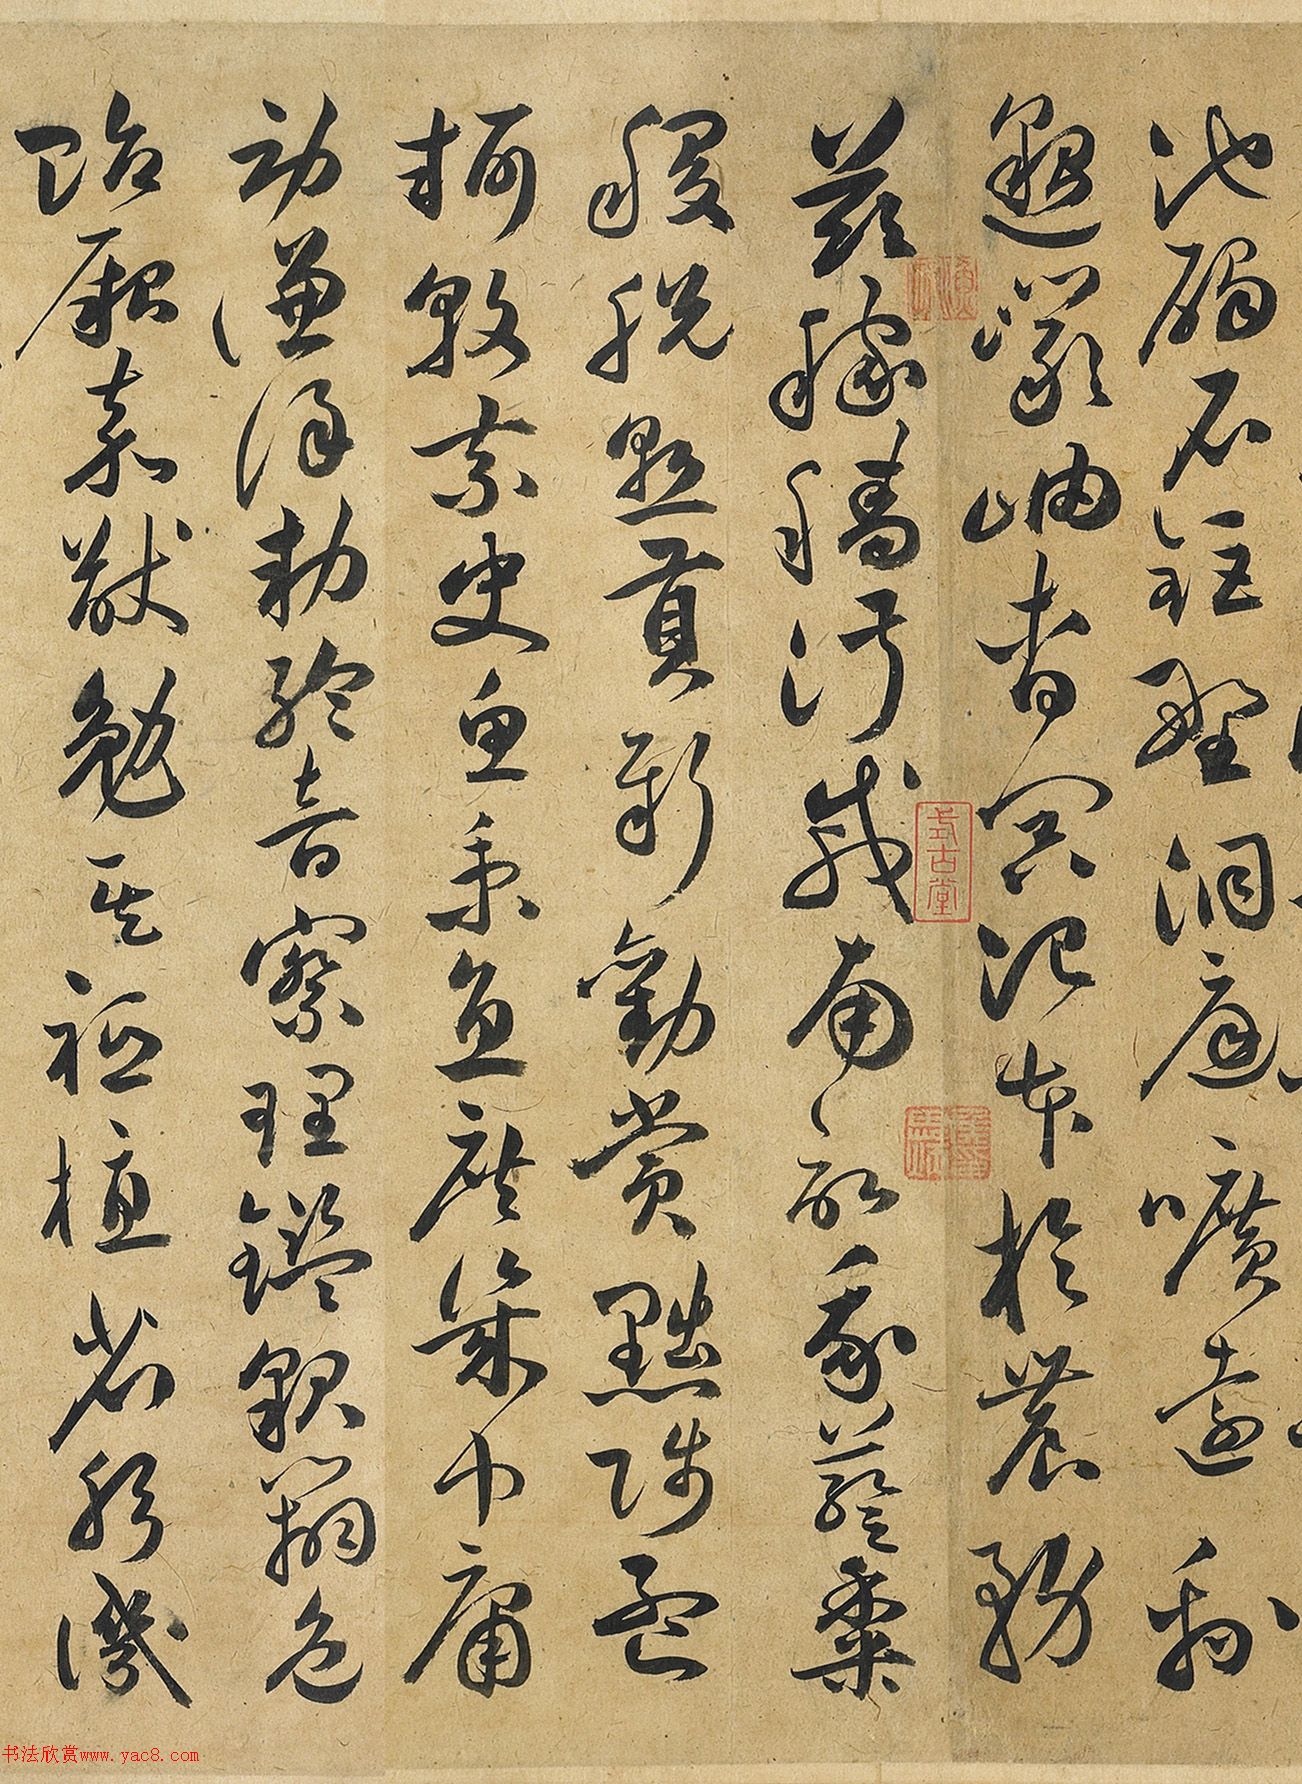 池碣石鉅野洞庭曠遠緜
邈巖岫杳冥治本於農務
茲稼穡俶載南畝我藝黍
稷稅熟貢新勸賞黜陟孟
軻敦素史魚秉直庶幾中庸
勞謙謹勑聆音察理鑑貌辨色
貽厥嘉猷勉其祗植省躬譏
式古堂
书法欣赏www.yac8.com